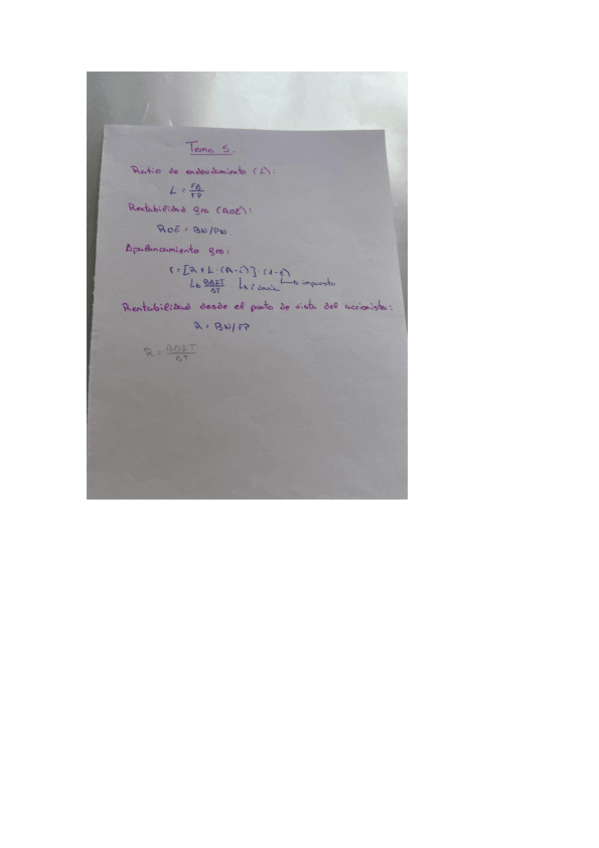 Tema 5.
Ratio de endeudamiento (L):
L = FA/FP
Rentabilidad fra (ROE):
ROE = BN/PN.
Apalancamiento fro:
r = [R + L · (R - i)] · (1 - t)
BAIT/AT impuesto
Rentabilidad desde el punto de vista del accionista:
R = BN/FP
R = BAIT/AT